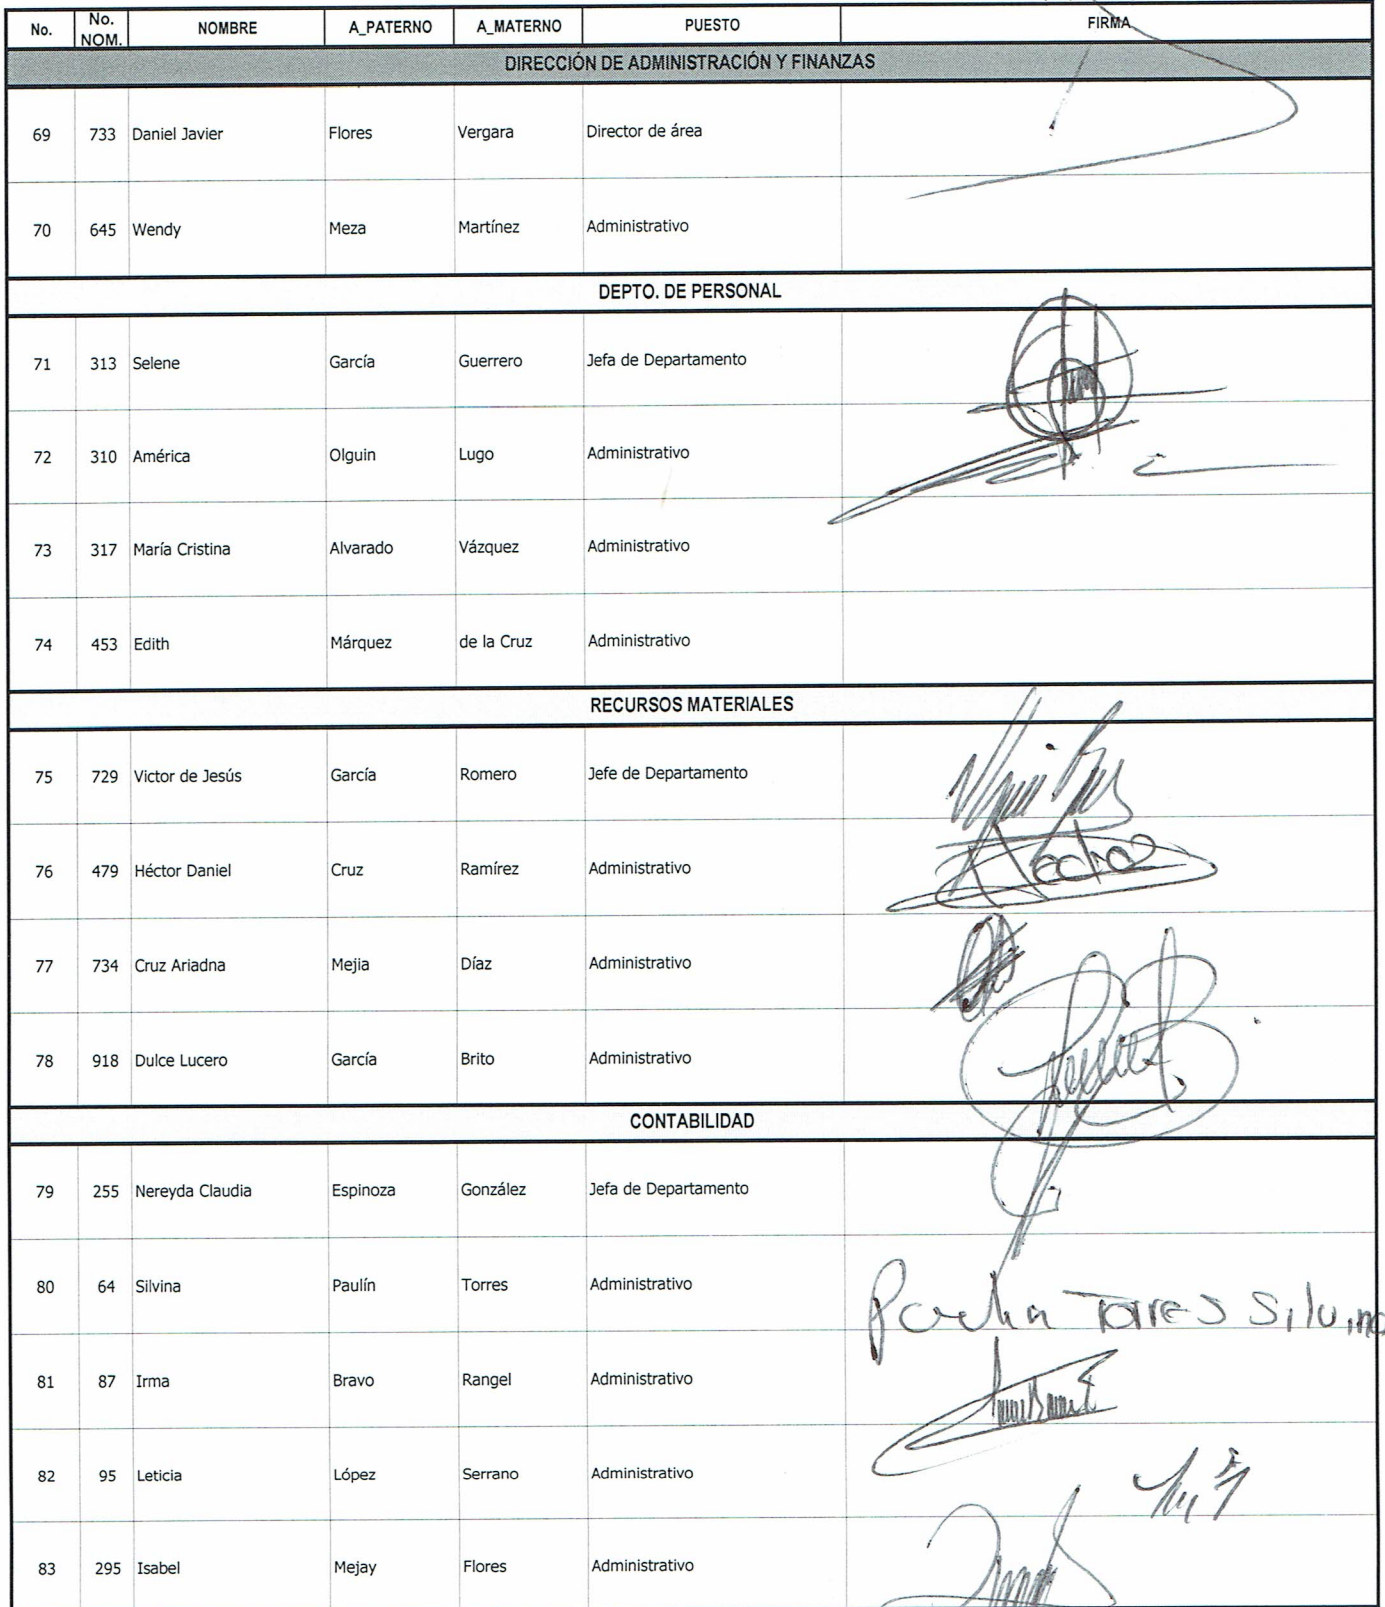 No. No. NOM. NOMBRE A_PATERNO A_MATERNO PUESTO FIRMA
DIRECCIÓN DE ADMINISTRACIÓN Y FINANZAS
69 733 Daniel Javier Flores Vergara Director de área
70 645 Wendy Meza Martínez Administrativo
DEPTO. DE PERSONAL
71 313 Selene García Guerrero Jefa de Departamento
72 310 América Olguin Lugo Administrativo
73 317 María Cristina Alvarado Vázquez Administrativo
74 453 Edith Márquez de la Cruz Administrativo
RECURSOS MATERIALES
75 729 Victor de Jesús García Romero Jefe de Departamento
76 479 Héctor Daniel Cruz Ramírez Administrativo
77 734 Cruz Ariadna Mejia Díaz Administrativo
78 918 Dulce Lucero García Brito Administrativo
CONTABILIDAD
79 255 Nereyda Claudia Espinoza González Jefa de Departamento
80 64 Silvina Paulín Torres Administrativo Torres Silvina
81 87 Irma Bravo Rangel Administrativo
82 95 Leticia López Serrano Administrativo
83 295 Isabel Mejay Flores Administrativo